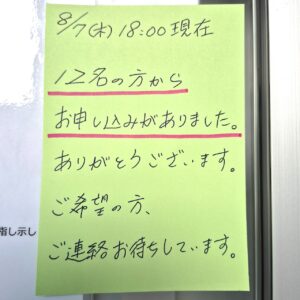 8/7(木)18:00現在
12名の方から
お申し込みがありました。
ありがとうございます。
ご希望の方、
ご連絡お待ちしています。
指し示し